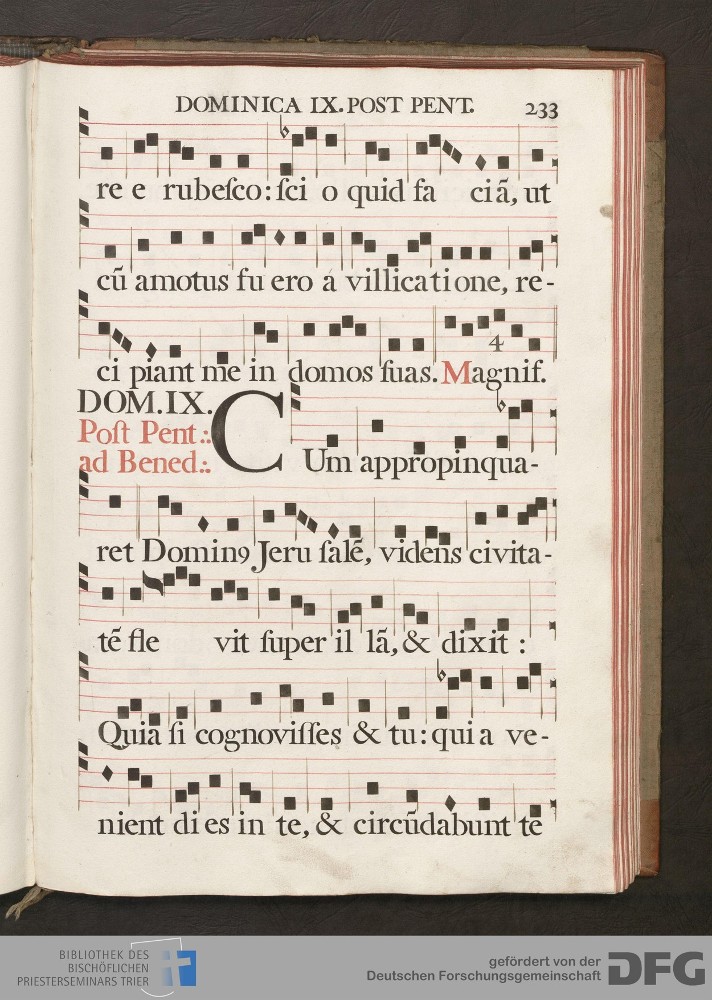 DOMINICA IX. POST PENT. 233
re e rubeſco: ſci o quid fa ciã, ut
cũ amotus fu ero á villicatione, re-
ci piant me in domos ſuas. Magnif.
4
DOM. IX.
Poſt Pent.:
ad Bened.:
CUm appropinqua-
ret Dominꝰ Jeru ſalẽ, videns civita-
tẽ fle vit ſuper il lã, & dixit :
Quia ſi cognoviſſes & tu: qui a ve-
nient di es in te, & circũdabunt te
BIBLIOTHEK DES
BISCHÖFLICHEN
PRIESTERSEMINARS TRIER
gefördert von der
Deutschen Forschungsgemeinschaft
DFG